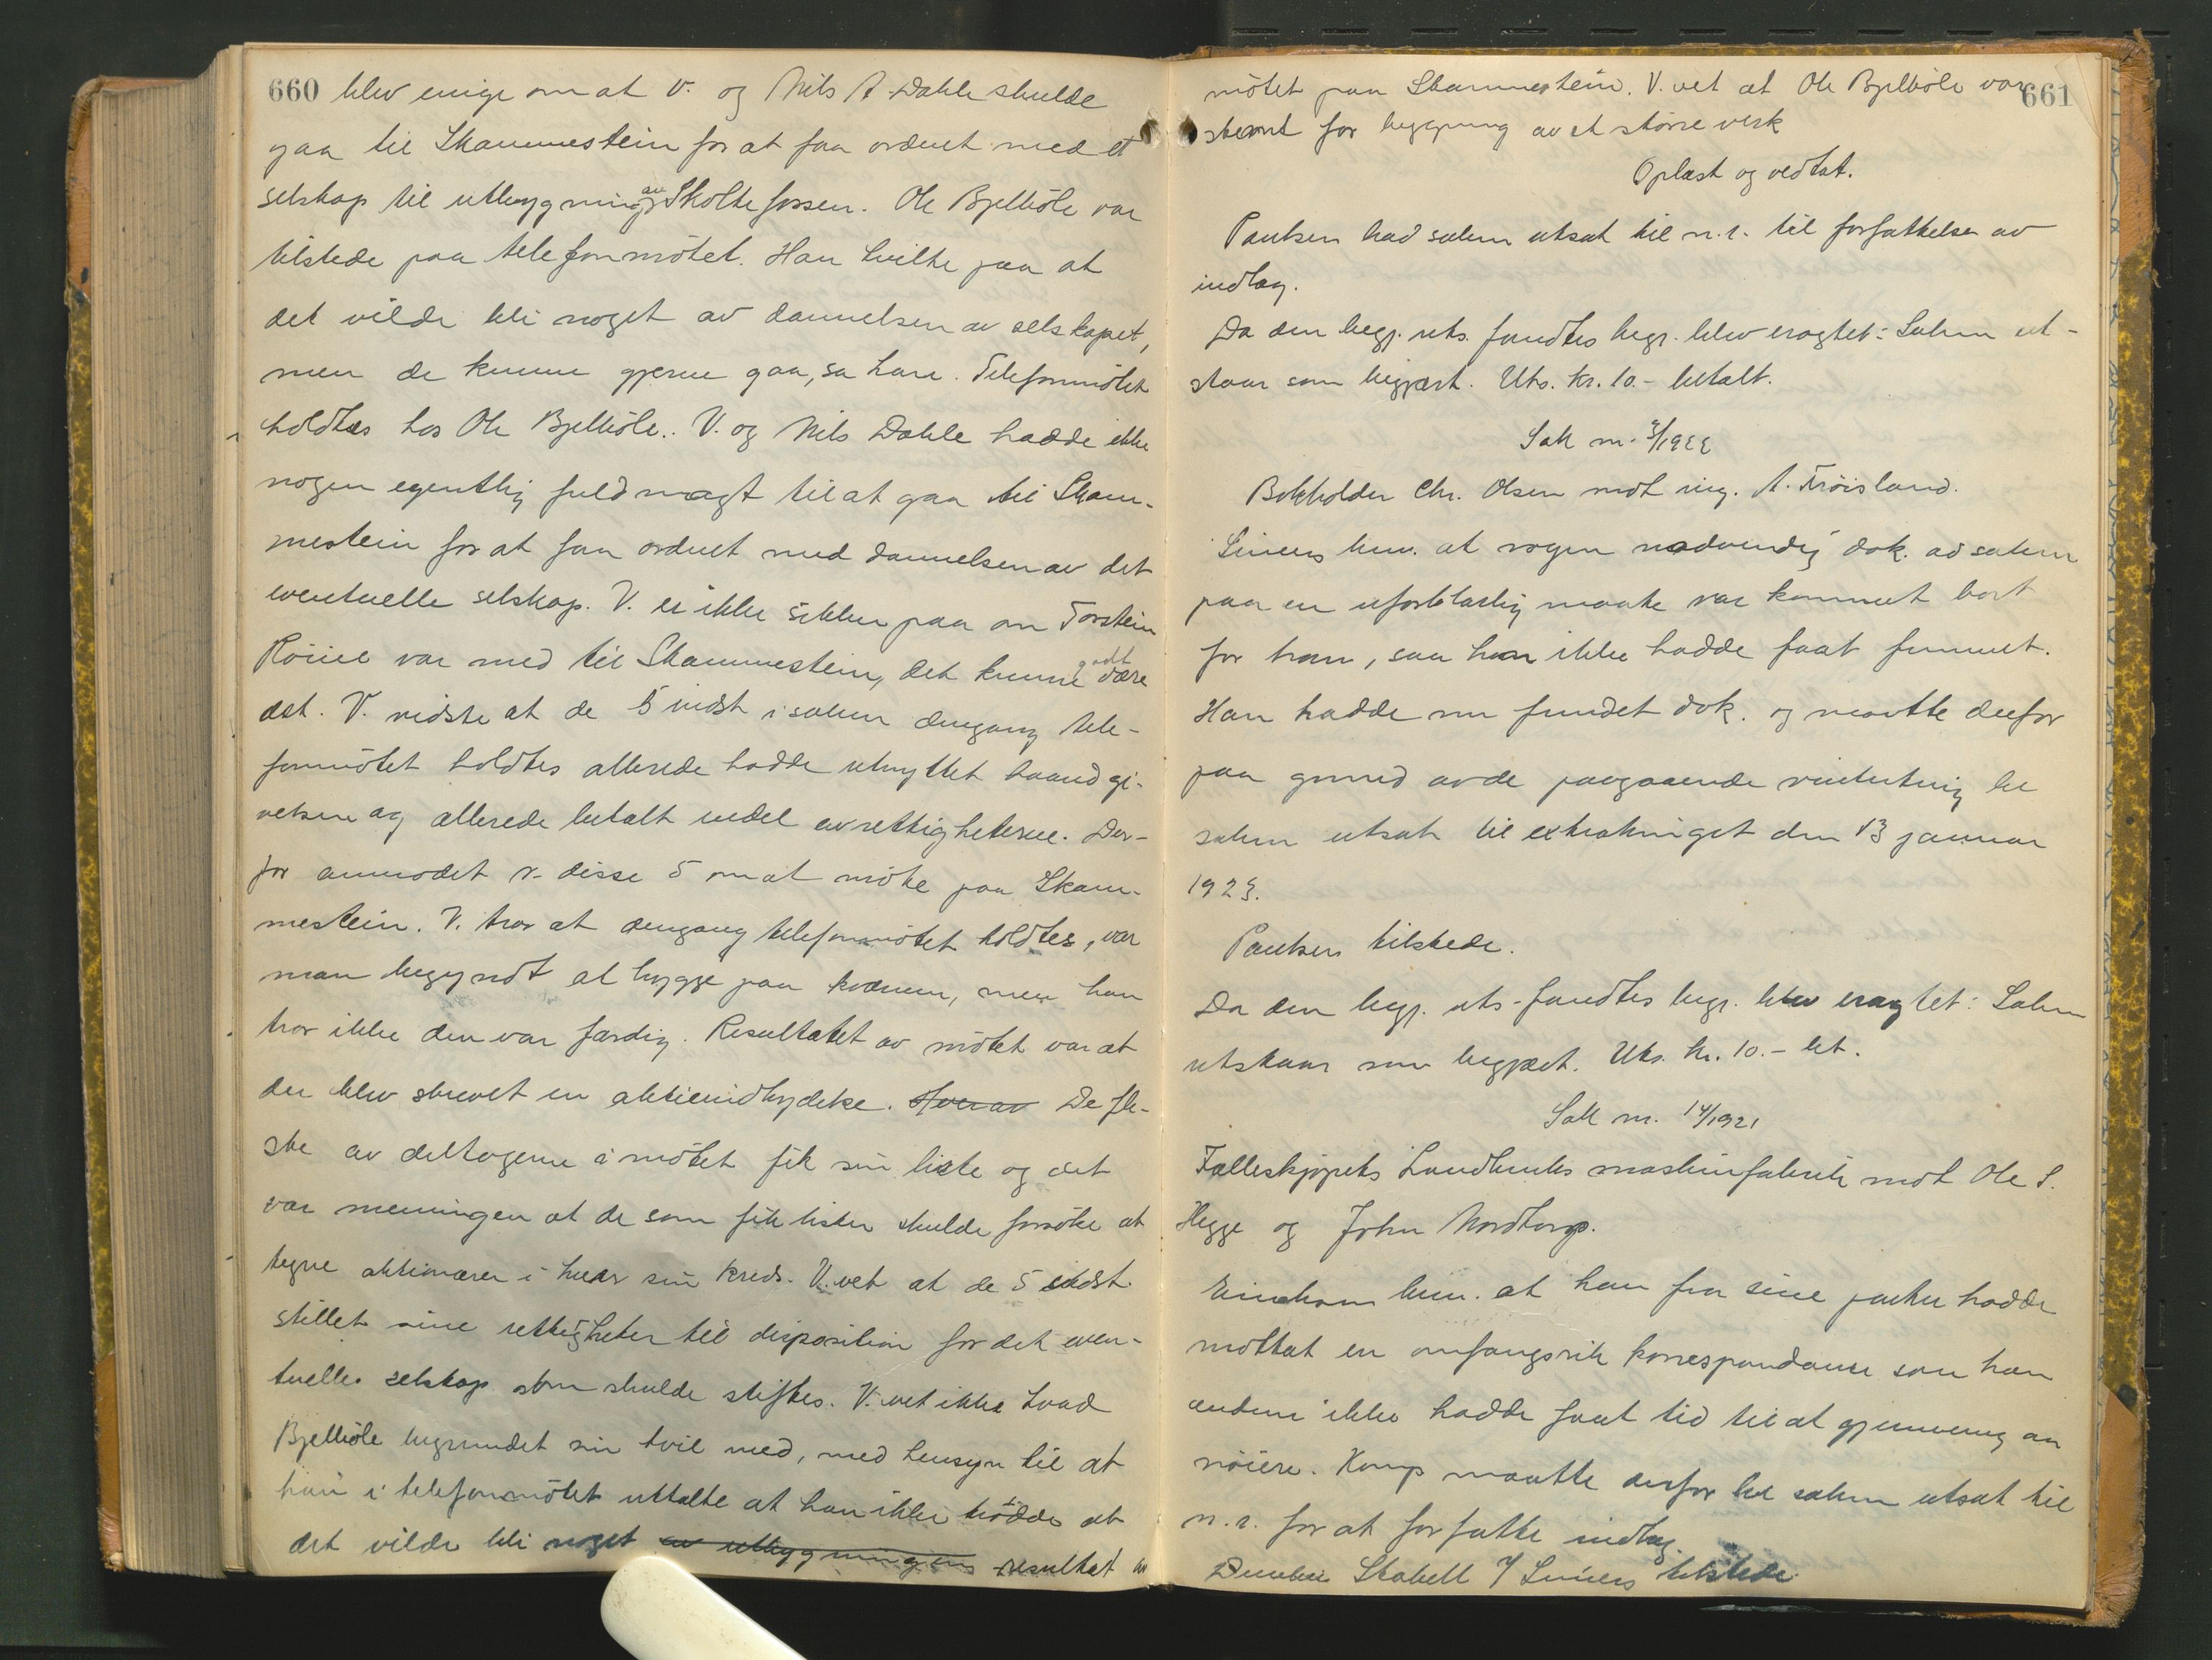 660 blev enige om at V. og Nils A. Dahle skulde
gaa til Skammestein for at faa ordnet med et
selskap til utbygning av Skoltefossen. Ole Bjelbøle var
tilstede paa telefonmötet. Han tvilte paa at
det vilde bli noget av dannelsen av selskapet,
men de kunne gjerne gaa, sa han. Telefonmötet
holdtes hos Ole Bjelböle. V. og Nils Dahle hadde ikke
nogen egentlig fuldmagt til at gaa til Skam-
mestein for at faa ordnet med dannelsen av det
eventuelle selskap. V. er ikke sikker paa om Torstein
var med til Skammestein, det kunne godt være
det. V. vidste at de 5 indst i saken dengang tele-
fonmötet holdtes allerede hadde utnyttet haandgi-
velsen og allerede betalt endel av rettigheterne. Der-
for anmodet v. disse 5 om at möte paa Skam-
mestein. V. tror at dengang telefonmötet holdtes, var
man begyndt at bygge paa kvernen, men han
tror ikke den var færdig. Resultatet av mötet var at
der blev skrevet en aktieindbydelse. Hver av De fle-
ste av deltagerne i mötet fik sin liste og det
var meningen at de som fik lister skulde forsöke at
tegne aktionærer i hver sin kreds. V. vet at de 5 indst.
stillet sine rettigheter til disposition for det even-
tuelle selskap som skulde stiftes. V. vet ikke hvad
Bjelböle begrundet sin tvil med, med hensyn til at
han i telefonmötet uttalte at han ikke trodde at
det vilde bli noget av utbygningens resultat av
mötet paa Skammestein. V. vet at Ole Bjelböle var 661
stemt for bygging av et större verk
Oplæst og vedtat.
Paulsen bad saken utsat til n.r. til forfattelse av
indlæg.
Da den begj. uts. fandtes begr. blev eragtet: Saken ut-
staar som begjært. Uts. kr. 10.- betalt.
Sak nr. 3/1922
Bokholder Chr. Olsen mot ing. A. Fröisland.
Siviers bem. at nogen nødvendig dok. ad saken
paa en uforklarlig maate var kommet bort
for ham, saa han ikke hadde faat funnet.
Han hadde nu fundet dok. og maatte derfor
paa grund av de paagaaende vintertinig be
saken utsat til extratinget den 13 januar
1923.
Paulsen tilstede.
Da den begj. uts. fandtes begr. blev eragtet: Saken
utstaar som begjært. Uts. kr. 10.- bet.
Sak nr. 14/1921
Fælleskjöpets Landbruks maskinfabrik mot Ole S.
Hegge og John Nordtorp.
bem. at han fra sine parter hadde
mottat en omfangsrik korrespondance som han
endnu ikke hadde faat tid til at gjennemgaa
nöiere. Komp maatte derfor be saken utsat til
n.r. for at forfatte indlæg.
Skabell f Siviers tilstede.